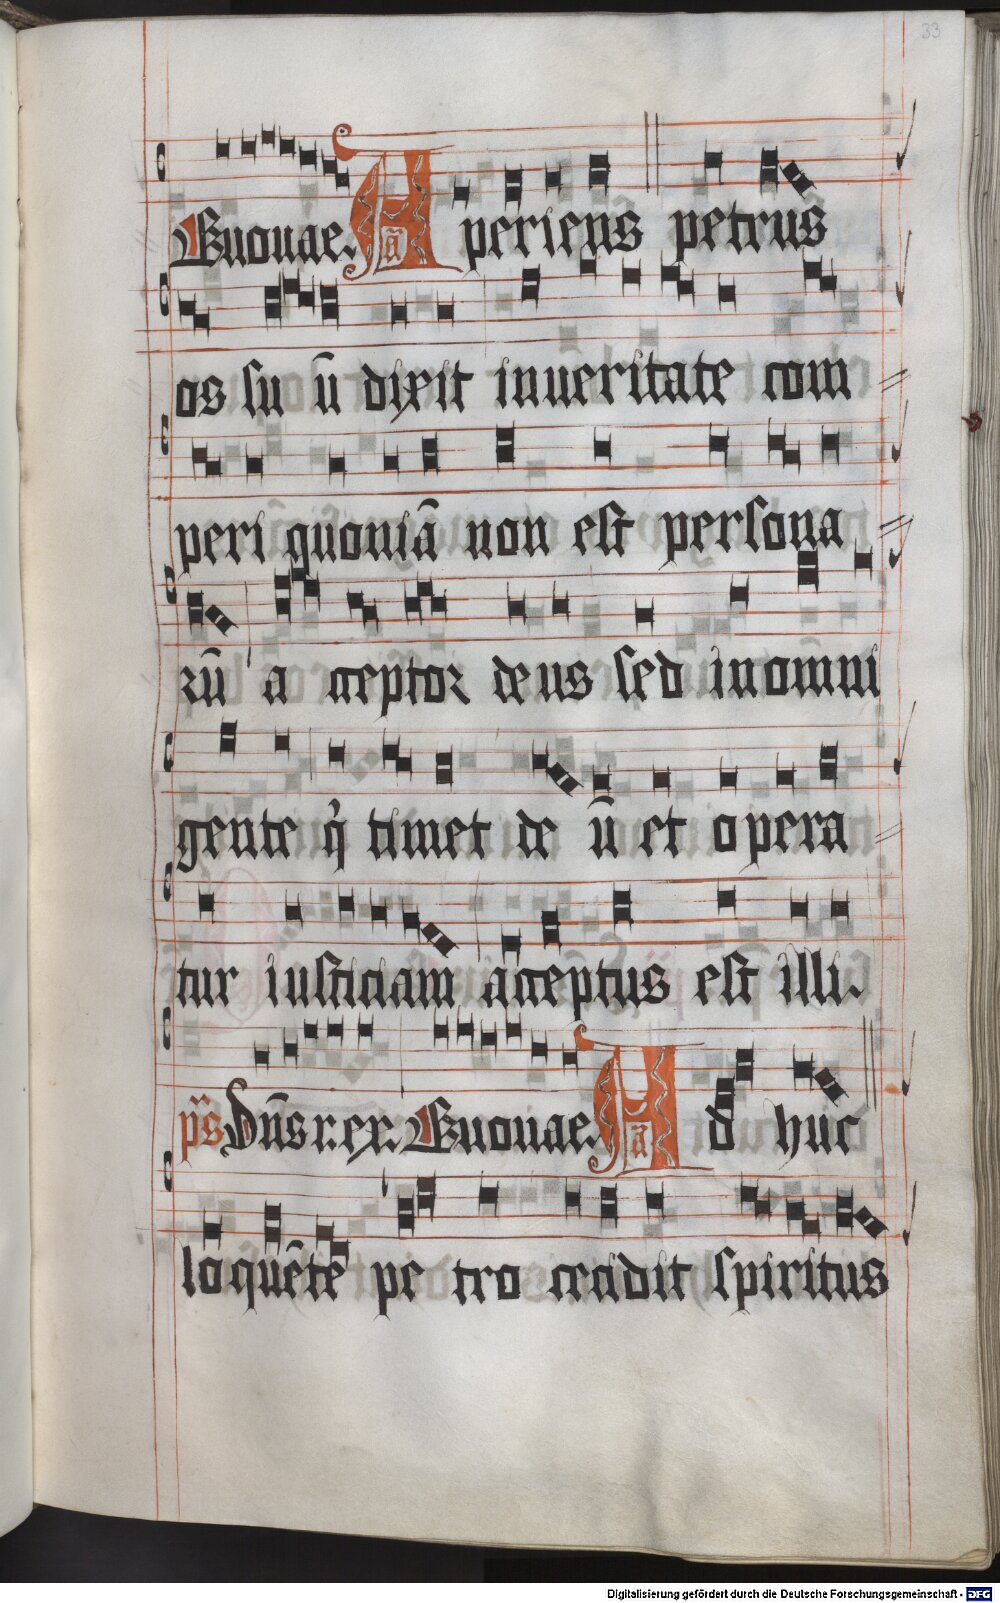 33
Euouae. A ā periens petrus
os su ū dixit inueritate com
peri quoniā non est persona
rū a cceptor deus sed inomni
gente q̇ timet de ū et opera
tur iusticiam acceptus est illi.
p̄s Dūs r. ex. Euouae. A ā d huc
loquēte pe tro cecidit spiritus
Digitalisierung gefördert durch die Deutsche Forschungsgemeinschaft - DFG